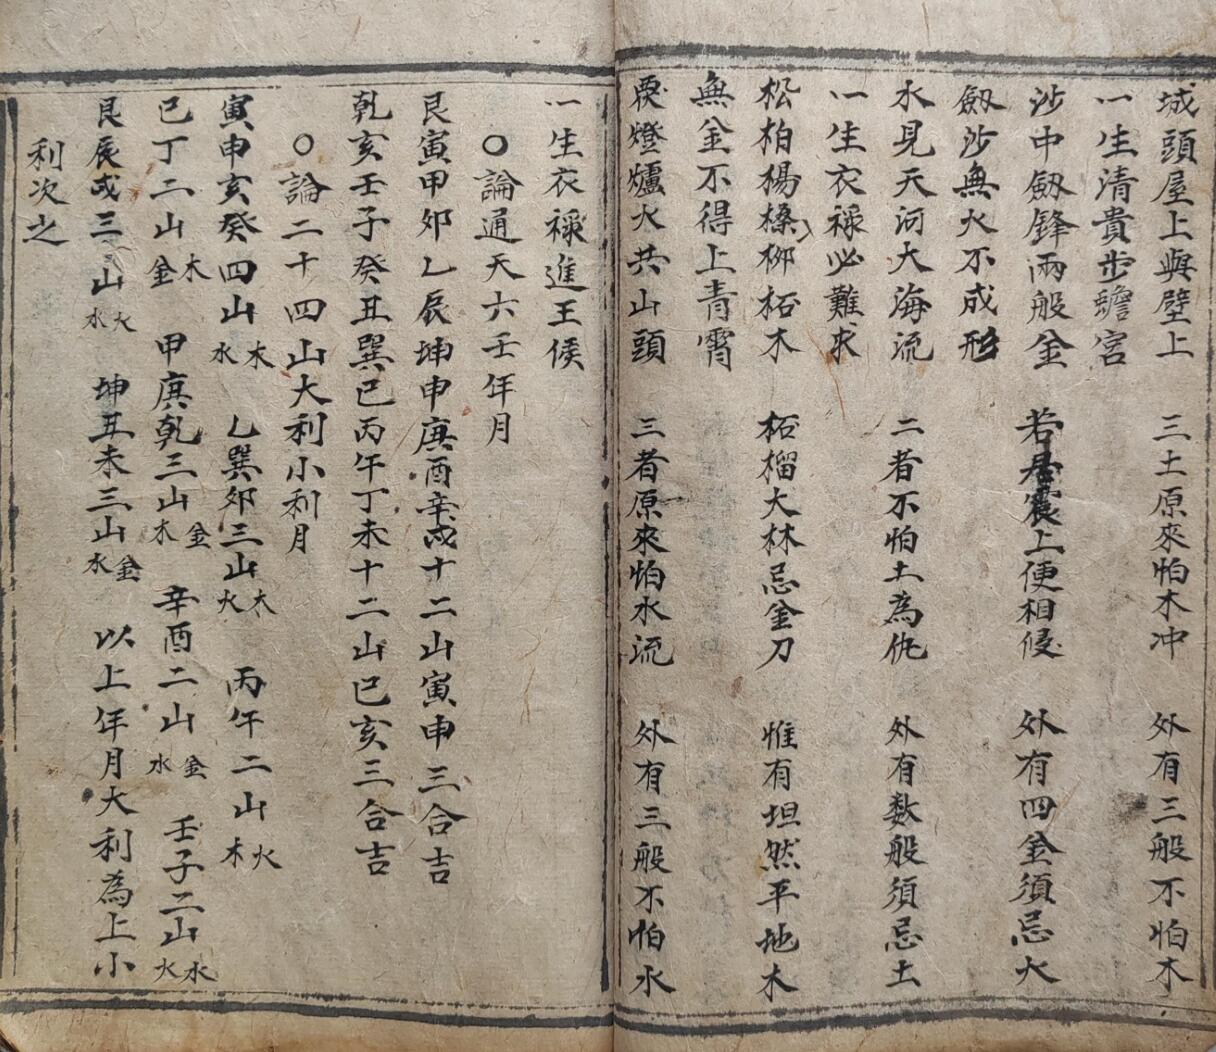 城頭屋上與壁上 三土原來怕木冲 外有三般不怕木
一生清貴步蟾宮
沙中劔鋒兩般金 若居震上便相侵 外有四金須忌火
劔沙無火不成形
水見天河大海流 二者不怕土為仇 外有数般須忌土
一生衣禄必難求
松柏楊槡柳柘木 柘榴大林忌金刀 惟有坦然平地木
無金不得上青霄
燈爐火共山頭 三者原來怕水流 外有三般不怕水
一生衣禄進王侯
○論通天六壬年月
艮寅甲夘乙辰坤申庚酉辛戌十二山寅申三合吉
乾亥壬子癸丑巽巳丙午丁未十二山巳亥三合吉
○論二十四山大利小利月
寅申亥癸四山木水 乙巽夘三山木火 丙午二山火木
巳丁二山木金 甲庚乾三山金木 辛酉二山金水 壬子二山水火
艮辰戌三山火水 坤丑未三山金水 以上年月大利為上小
利次之